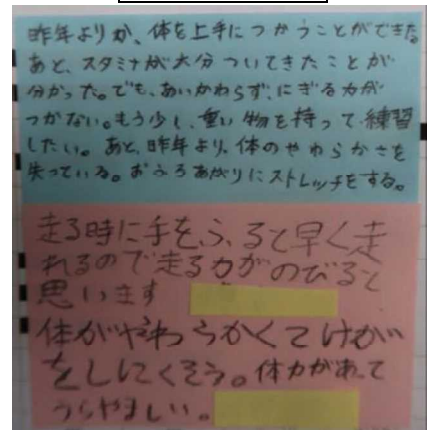 昨年よりか、体を上手につかうことができた。
あと、スタミナが大分ついてきたことが
分かった。でも、あいかわらず、にぎる力が
つかない。もう少し、重い物を持って練習
したい。あと、昨年より、体のやわらかさを
失っている。おふろあがりにストレッチをする。
走る時に手をふると早く走
れるので走る力がのびると
思います
体がやわらかくてけが
をしにくそう。体力があって
うらやましい。